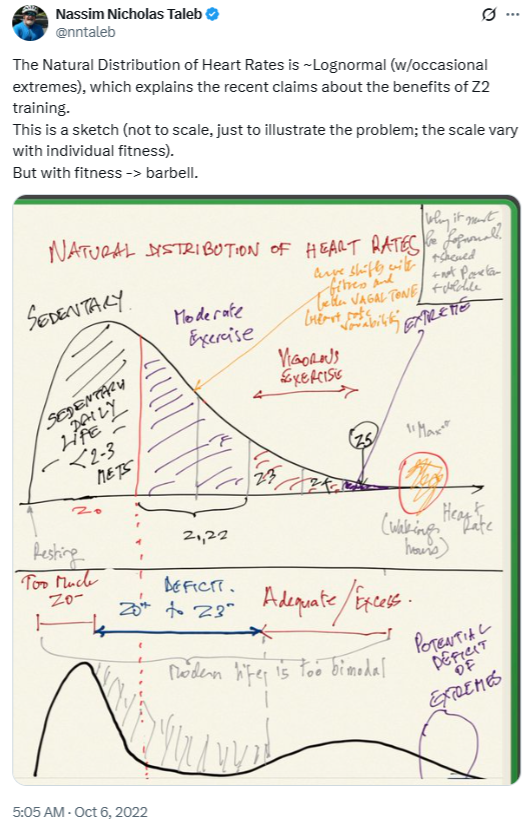 Nassim Nicholas Taleb
@nntaleb
The Natural Distribution of Heart Rates is ~Lognormal (w/occasional
extremes), which explains the recent claims about the benefits of Z2
training.
This is a sketch (not to scale, just to illustrate the problem; the scale vary
with individual fitness).
But with fitness -> barbell.
Why it must
be Lognormal?
+ skewed
+ not
+ volatile
NATURAL DISTRIBUTION OF HEART RATES
Curve shifts with
fitness and
VAGAL TONE
(Heart rate
variability)
SEDENTARY
Moderate
Exercise
EXTREME
VIGOROUS
EXERCISE
SEDENTARY
DAILY
LIFE
<2-3
METS
Z5
"Max"
Z3
Z4
Z0
Z1, Z2
Heart
Rate
(Waking
hours)
Resting
Too Much
Z0-
DEFICIT.
Z0+ to Z3-
Adequate/Excess.
Modern life is too bimodal
POTENTIAL
DEFICIT
OF
EXTREMES
5:05 AM · Oct 6, 2022